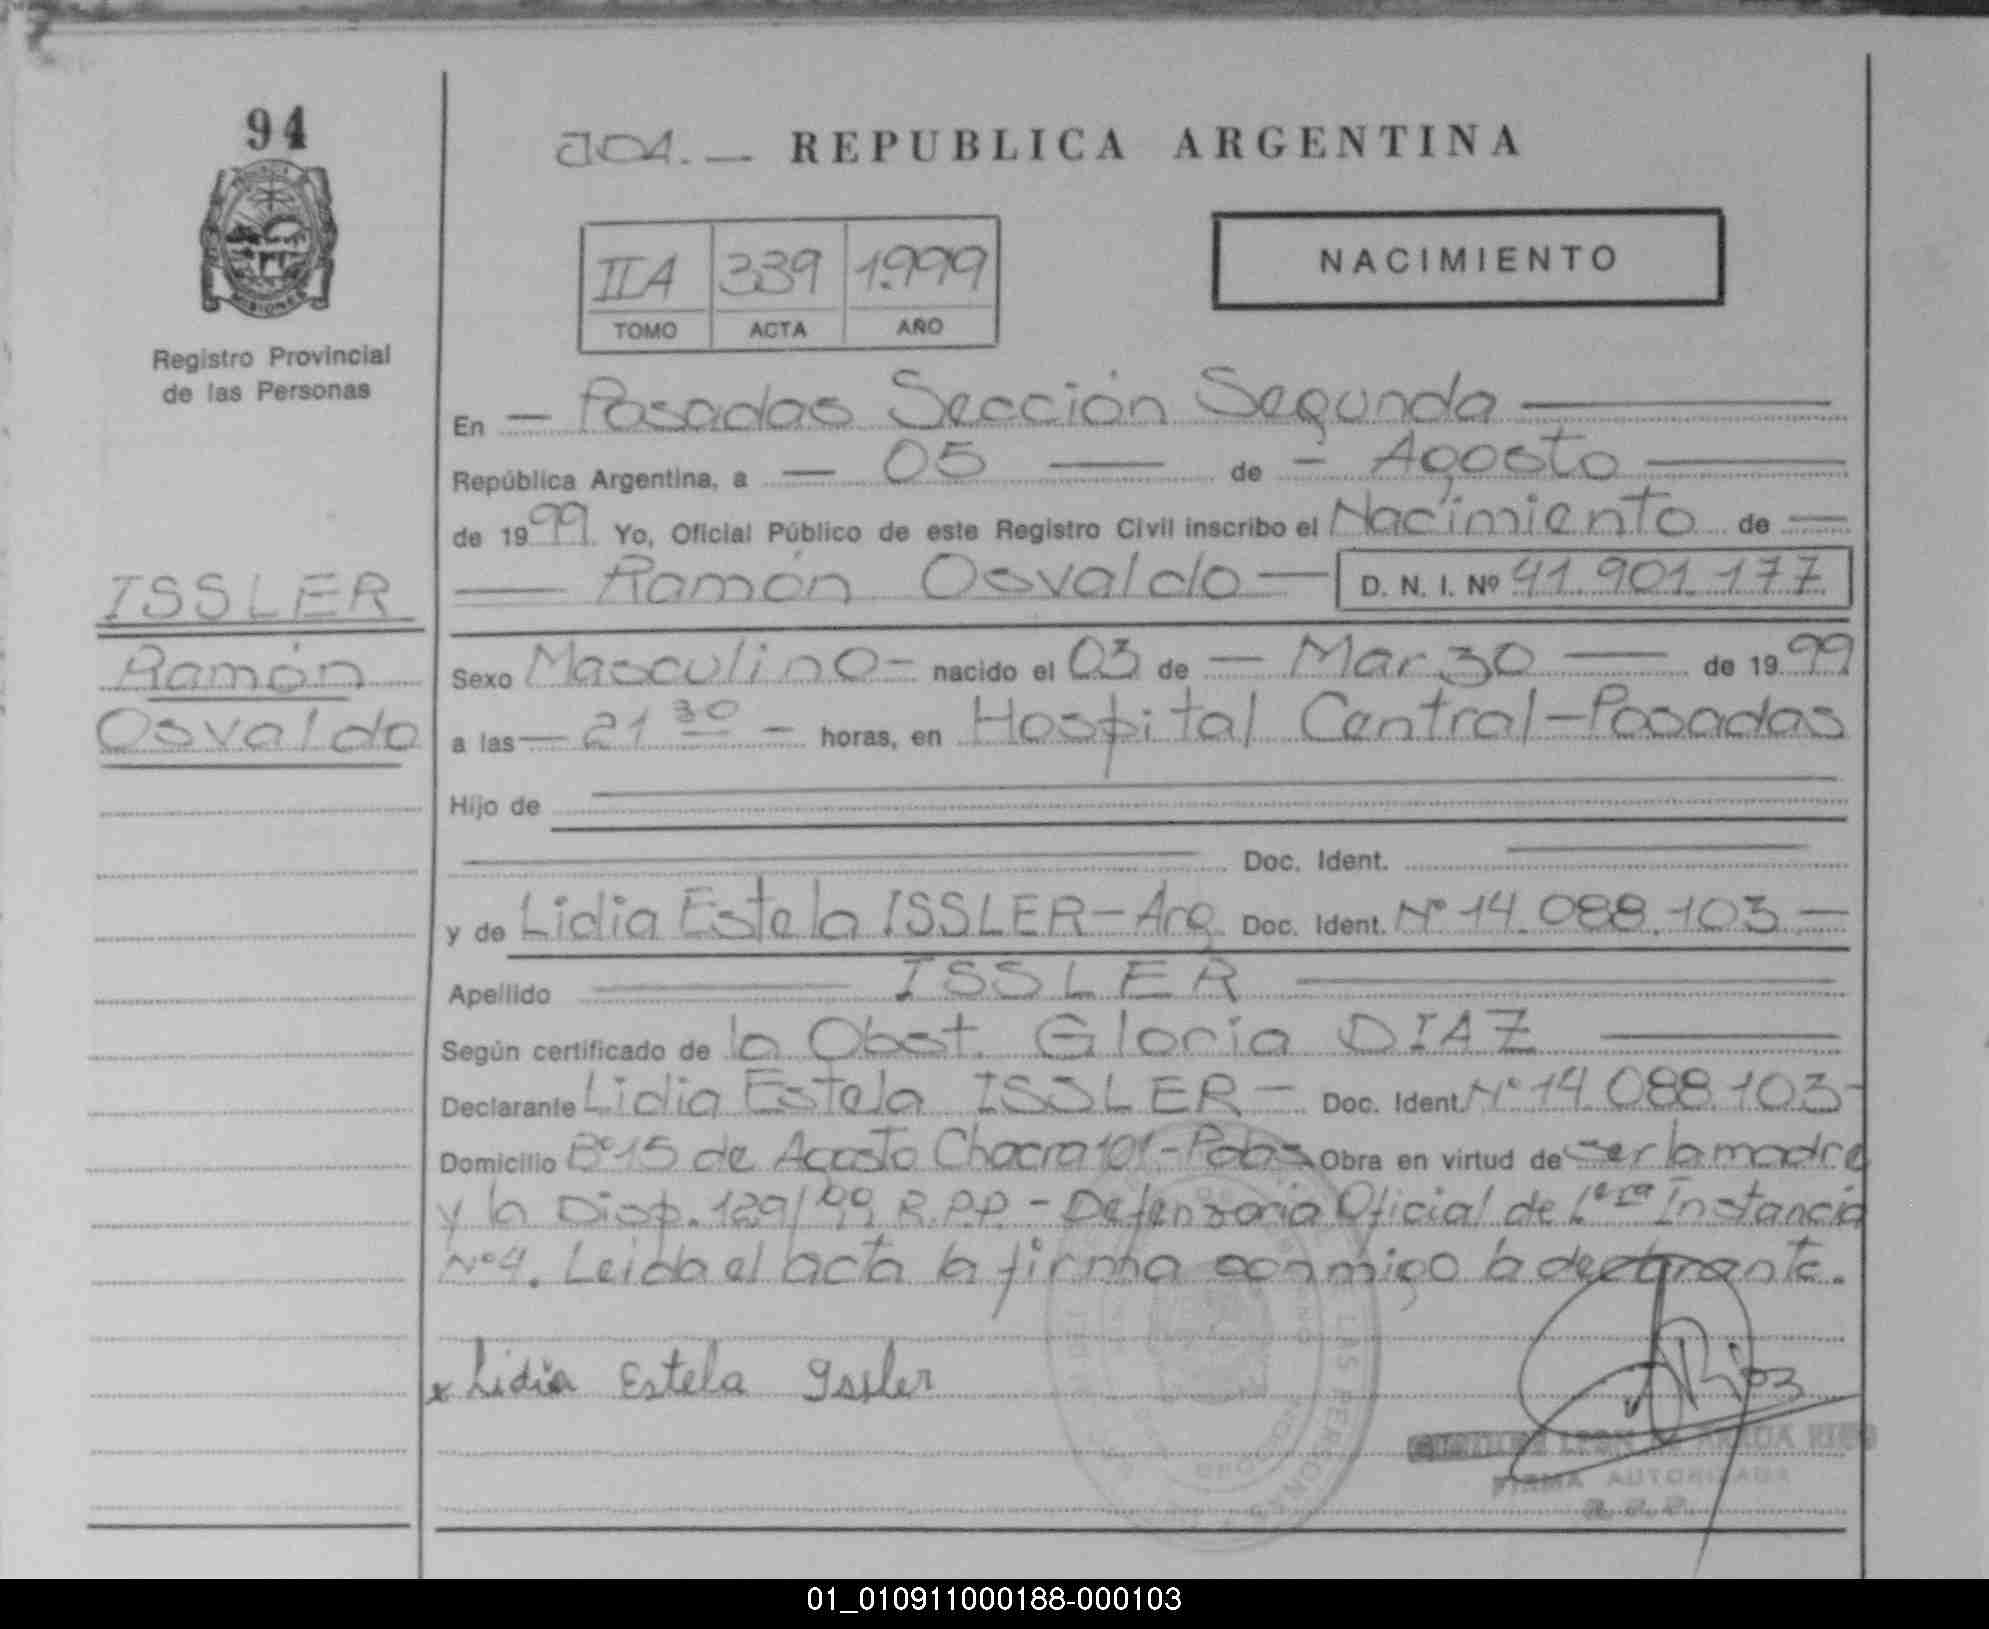 94
REPUBLICA ARGENTINA
IIA 339 1.999
TOMO ACTA AÑO
NACIMIENTO
MISIONES
Registro Provincial
de las Personas
En — Posadas Sección Segunda —
República Argentina, a — 05 — de — Agosto —
de 1999. Yo, Oficial Público de este Registro Civil inscribo el Nacimiento de —
— Ramón Osvaldo — D. N. I. Nº 41.901.177
ISSLER
Ramón
Osvaldo
Sexo Masculino — nacido el 03 de — Marzo — de 1999
a las — 21 30 — horas, en Hospital Central - Posadas
Hijo de
Doc. Ident.
y de Lidia Estela ISSLER - Arg. Doc. Ident. Nº 14.088.103 —
Apellido — ISSLER —
Según certificado de la Obst. Gloria DIAZ —
Declarante Lidia Estela ISSLER — Doc. Ident. Nº 14.088.103 -
Domicilio Bº 15 de Agosto Chacra 101 - Pdas Obra en virtud de ser la madre
y la Disp. 129/99 R.P.P. - Defensoria Oficial de 1era Instancia
Nº 4. Leida el acta la firma conmigo la declarante.
x Lidia Estela Issler
Rios
LEON DE ARRUA RIOS
FIRMA AUTORIZADA
01_010911000188-000103